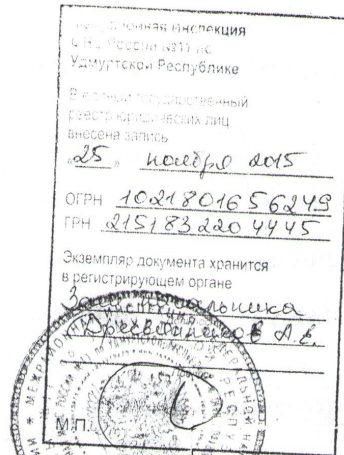 инспекция
ФНС России №11 по
Удмуртской Республике
В единый государственный
реестр юридических лиц
внесена запись
«25» ноября 2015
ОГРН 1021801656249
ГРН 2151832204445
Экземпляр документа хранится
в регистрирующем органе
А.Е.
М.П.